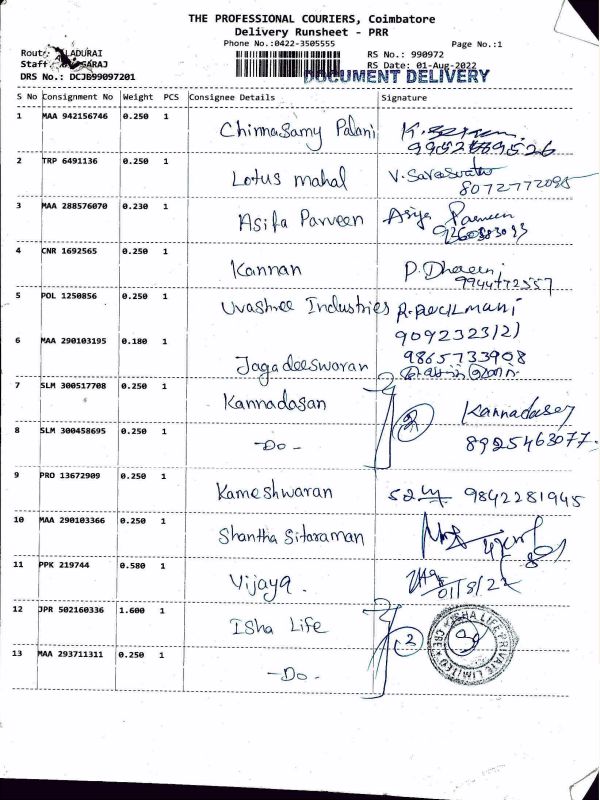 THE PROFESSIONAL COURIERS, Coimbatore
Delivery Runsheet - PRR
Phone No.:0422-3505555 Page No.:1
LADURAI RS No.: 990972
Staff: RAJ RS Date: 01-Aug-2022
DOCUMENT DELIVERY
DRS No.: DCJB99097201
S No Consignment No Weight PCS Consignee Details Signature
1 MAA 942156746 0.250 1 Chinnasamy Palani
2 TRP 6491136 0.250 1 Lotus mahal V. Saraswathi
8072772095
3 MAA 288576070 0.230 1 Asifa Parveen Asifa Parveen
4 CNR 1692565 0.250 1 Kannan
9944772557
5 POL 1250856 0.250 1 Uvashree Industries
9092323121
6 MAA 290103195 0.180 1 Jagadeeswaran 9865733908
7 SLM 300517708 0.250 1 Kannadasan 2 Kannadasan
8 SLM 300458695 0.250 1 -Do- 8925463077
9 PRO 13672909 0.250 1 Kameshwaran 9842281945
10 MAA 290103366 0.250 1 Shantha Sitaraman
11 PPK 219744 0.580 1 Vijaya. 01/8/22
12 JPR 502160336 1.600 1 Isha Life 2 ISHA LIFE PRIVATE LIMITED CBE
13 MAA 293711311 0.250 1 -Do-